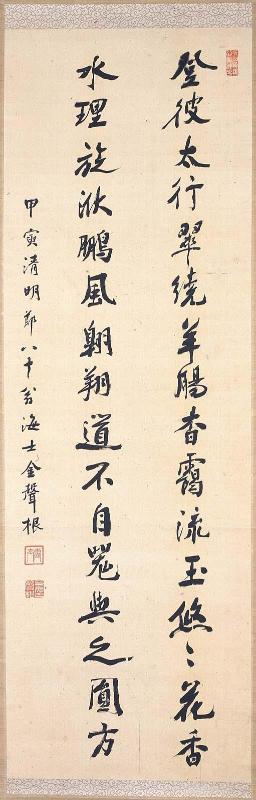 登彼太行翠繞羊腸杳靄流玉悠〻花香
水理旋洑鵬風翱翔道不自器與之圓方
甲寅清明節八十翁海士金聲根